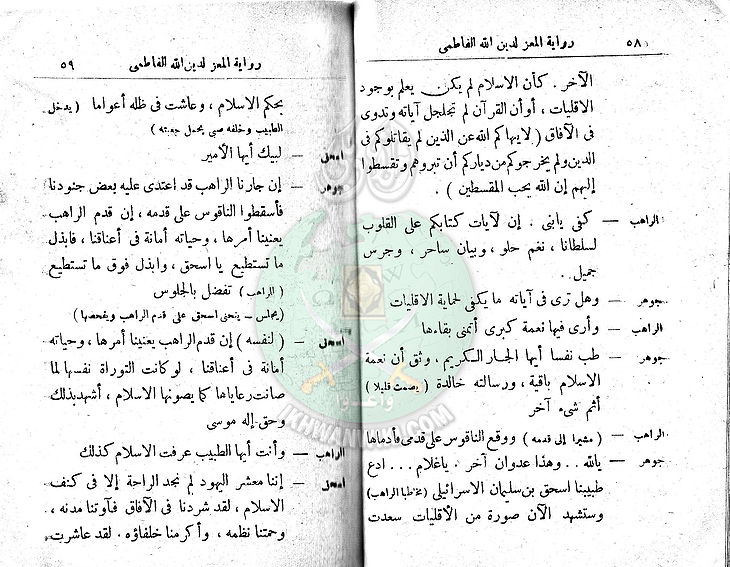 ٥٨ رواية المعز لدين الله الفاطمى
الآخر . كأن الاسلام لم يكن يعلم بوجود
الاقليات ، أو أن القرآن لم تجلجل آياته وتدوى
فى الآفاق ( لا ينهاكم الله عن الذين لم يقاتلوكم فى
الدين ولم يخرجوكم من دياركم أن تبروهم وتقسطوا
إليهم إن الله يحب المقسطين ) .
الراهب — كفى يابنى . إن لآيات كتابكم على القلوب
لسلطانا ، نغم حلو ، وبيان ساحر ، وجرس
جميل .
جوهر — وهل ترى فى آياته ما يكفى لحماية الاقليات
الراهب — وأرى فيها نعمة كبرى أتمنى بقاءها
جوهر — طب نفسا أيها الجار الكريم ، وثق أن نعمة
الاسلام باقية ، ورسالته خالدة ( يصمت قليلا )
أثم شىء آخر
الراهب — ( مشيرا إلى قدمه ) ووقع الناقوس على قدمى فأدماها
جوهر — يالله . . وهذا عدوان آخر . ياغلام . . . ادع
طبيبنا اسحق بن سليمان الاسرائيلى ( مخاطبا الراهب )
وستشهد الآن صورة من الأقليات سعدت
رواية المعز لدين الله الفاطمى ٥٩
بحكم الاسلام ، وعاشت فى ظله أعواما ( يدخل
الطبيب وخلفه صبى يحمل جعبته )
اسحق — لبيك أيها الأمير
جوهر — إن جارنا الراهب قد اعتدى عليه بعض جنودنا
فأسقطوا الناقوس على قدمه ، إن قدم الراهب
يعنينا أمرها ، وحياته أمانة فى أعناقنا ، فابذل
ما تستطيع يا اسحق ، وابذل فوق ما تستطيع
( الراهب ) تفضل بالجلوس
( يجلس — ينحنى اسحق على قدم الراهب ويفحصها )
اسحق — ( لنفسه ) إن قدم الراهب يعنينا أمرها ، وحياته
أمانة فى أعناقنا ، لو كانت التوراة نفسها لما
صانت رعاياها كما يصونها الاسلام ، أشهد بذلك
وحق إله موسى
الراهب — وأنت أيها الطبيب عرفت الاسلام كذلك
اسحق — إننا معشر اليهود لم نجد الراحة إلا فى كنف
الاسلام ، لقد شردنا فى الآفاق فآوتنا مدنه ،
وحمتنا نظمه ، وأكرمنا خلفاؤه . لقد عاشرت
IKHWANWIKI.COM